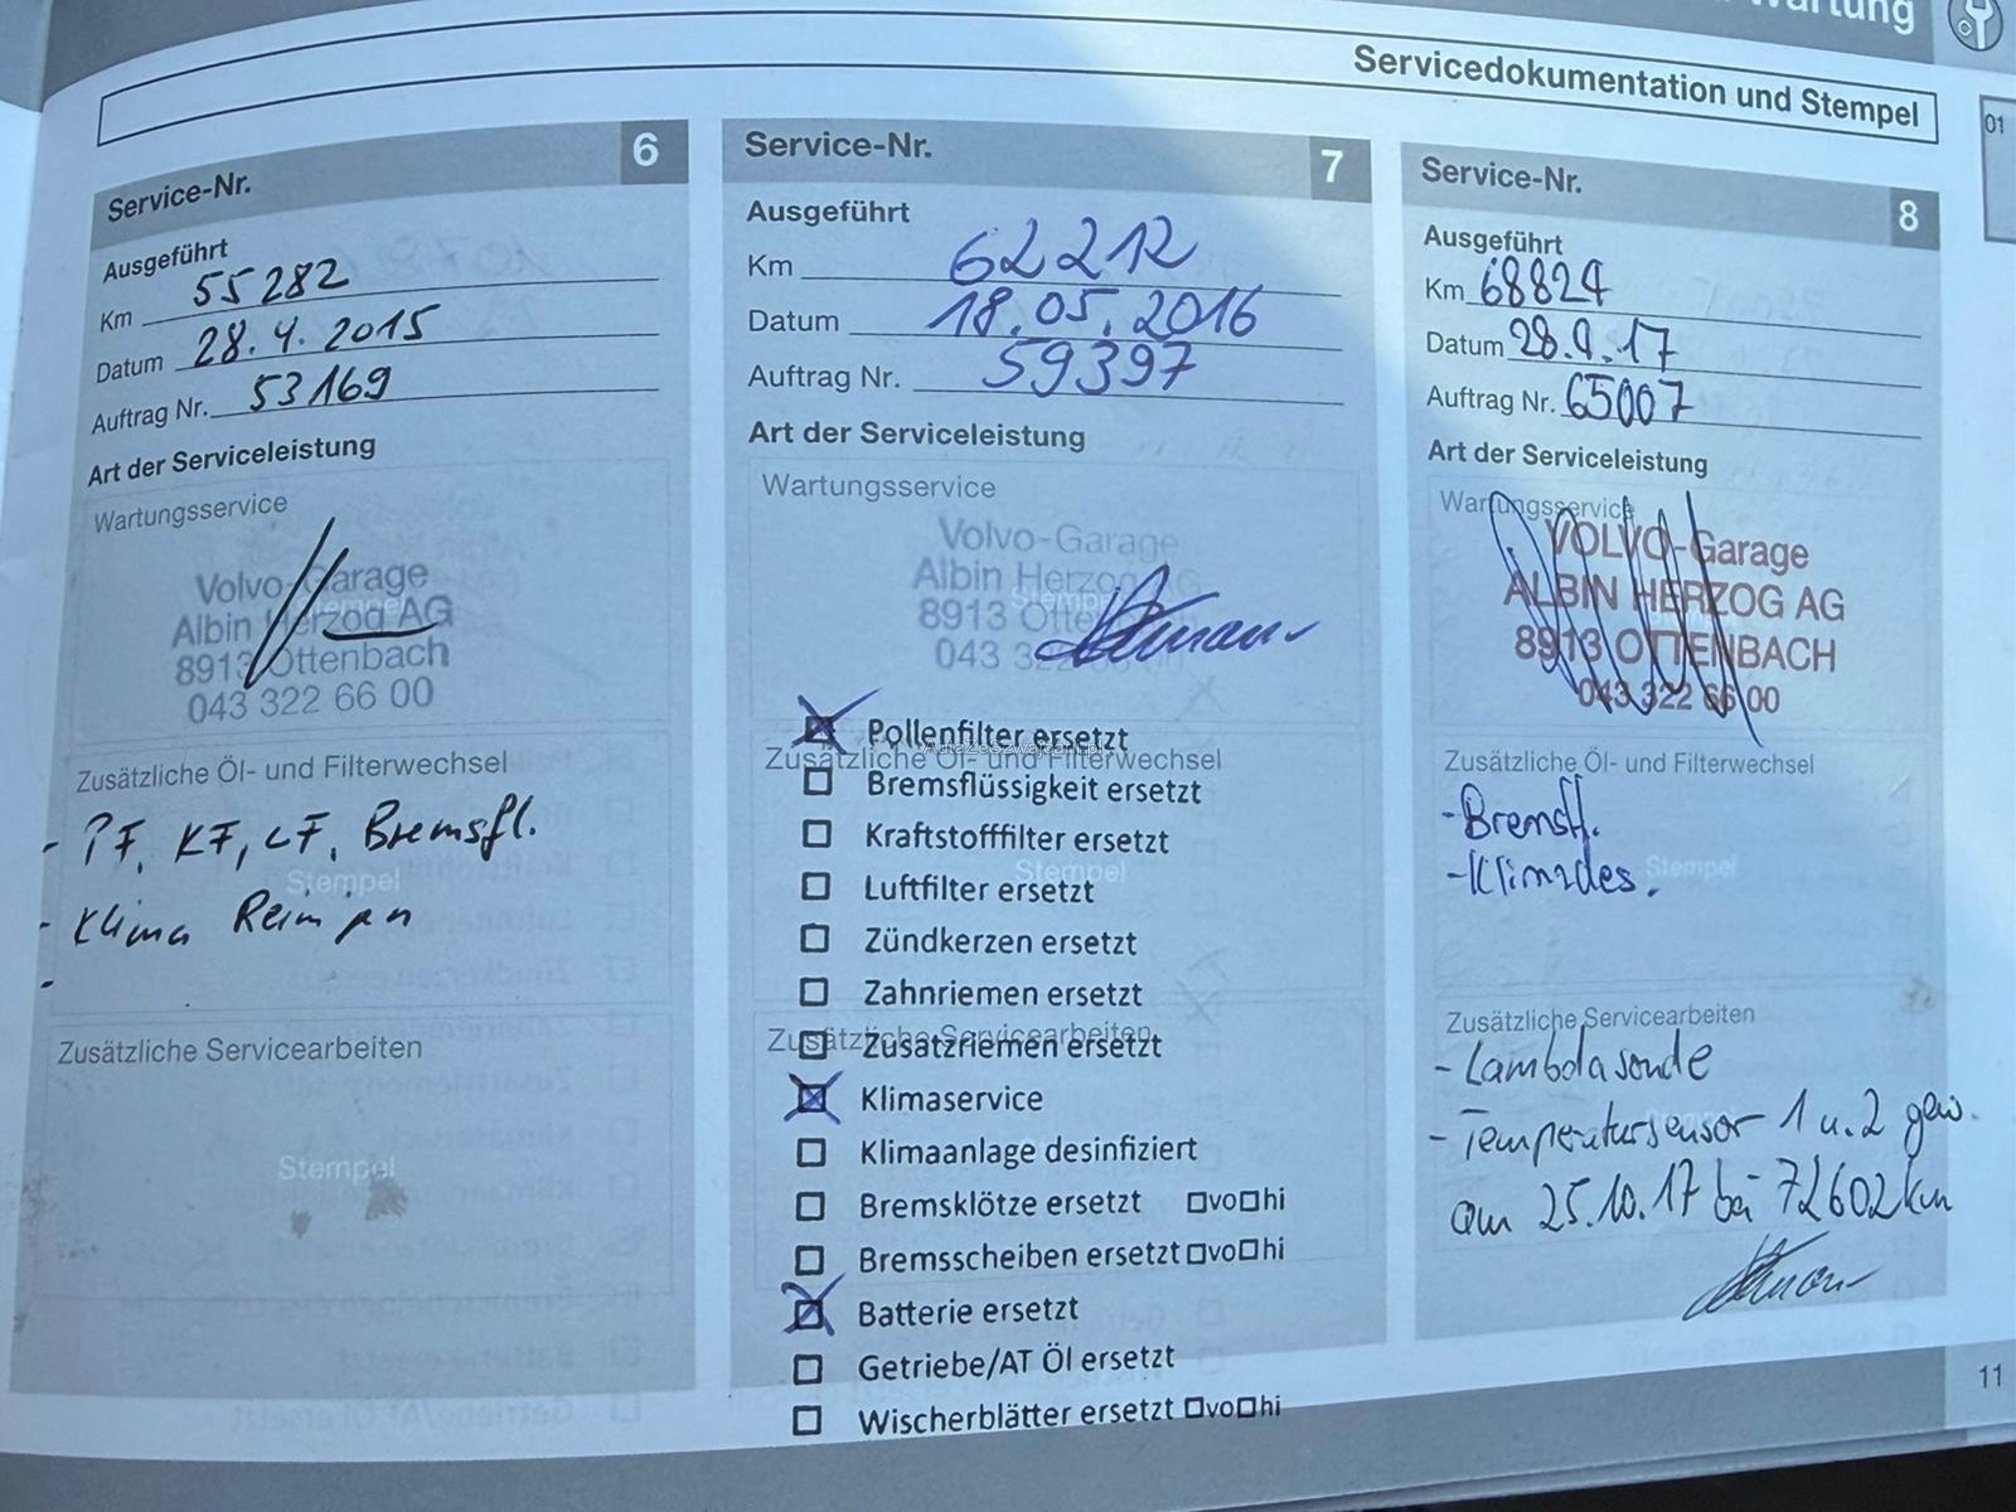 Wartung
Servicedokumentation und Stempel
01
Service-Nr. 6
Ausgeführt
Km 55282
Datum 28.4.2015
Auftrag Nr. 53169
Art der Serviceleistung
Wartungsservice
Stempel
Volvo-Garage
Albin Herzog AG
8913 Ottenbach
043 322 66 00
Zusätzliche Öl- und Filterwechsel
- PF, KF, LF, Bremsfl.
Stempel
- Klima
-
Zusätzliche Servicearbeiten
Stempel
Service-Nr. 7
Ausgeführt
Km 62212
Datum 18.05.2016
Auftrag Nr. 59397
Art der Serviceleistung
Wartungsservice
Volvo-Garage
Albin Herzog AG
Stempel
8913 Otte
043 322 66 00
Pollenfilter ersetzt
AutaZeSzwajcarii.pl
Zusätzliche Öl- und Filterwechsel
Bremsflüssigkeit ersetzt
Kraftstofffilter ersetzt
Stempel
Luftfilter ersetzt
Zündkerzen ersetzt
Zahnriemen ersetzt
Zusätzliche Servicearbeiten
Zusatzriemen ersetzt
Klimaservice
Klimaanlage desinfiziert
Bremsklötze ersetzt vo hi
Bremsscheiben ersetzt vo hi
Batterie ersetzt
Getriebe/AT Öl ersetzt
Wischerblätter ersetzt vo hi
Service-Nr. 8
Ausgeführt
Km 68824
Datum 28.9.17
Auftrag Nr. 65007
Art der Serviceleistung
Wartungsservice
VOLVO-Garage
ALBIN HERZOG AG
8913 OTTENBACH
043 322 66 00
Zusätzliche Öl- und Filterwechsel
- Bremsfl.
- Klimades.
Stempel
Zusätzliche Servicearbeiten
- Lambdasonde
- Temperatursensor 1 u. 2 gew.
am 25.10.17 bei 72602km
11